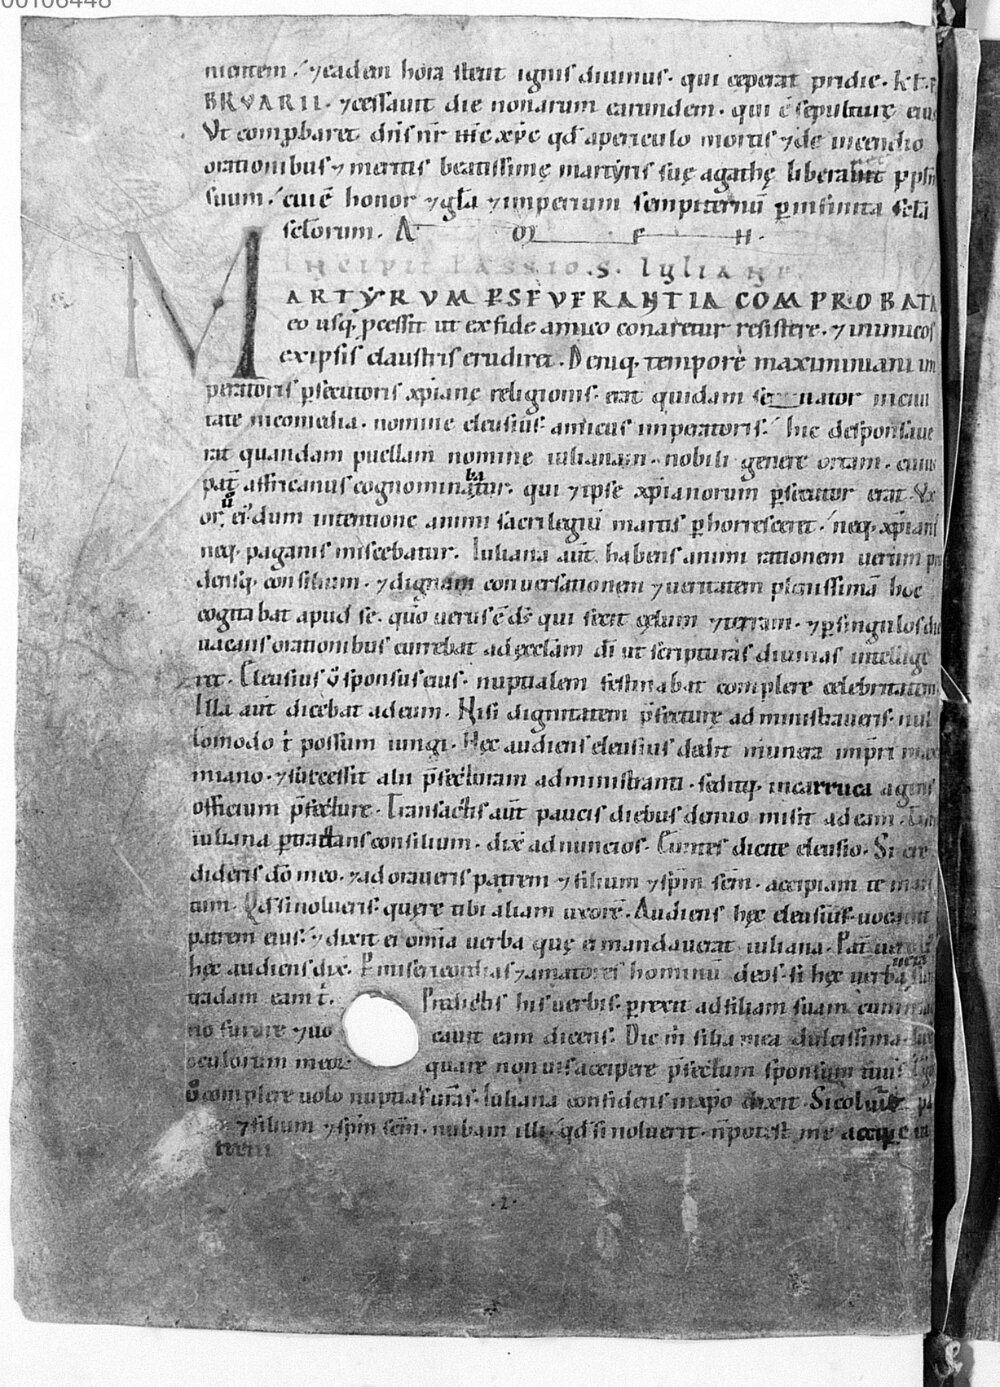 00106448
mentem / ⁊eadem hora stetit ignis diuinus · qui ceperat pridie · kł · FE
BRVARII · ⁊cessauit die nonarum earundem · qui ē sepulturę eius
Vt comꝓbaret dn̄s nr̄ ihc xp̄c qd̄ apericulo mortis ⁊de incendio
orationibus ⁊ meritis beatissimę martyris suę agathę liberabit
suum / cui ē honor ⁊gła ⁊imperium sempiternū ꝑinfinita scła
scłorum · A OI F H ·
INCIPIT PASSIO · S · IULIANE
MARTYRVM PSEVERANTIA COMPROBATA
eo usq; ꝓcessit ut exfide amico conaretur resistere · ⁊ inimicos
exipsis claustris erudiret · Deniq; tempore maximiani im
peratoris ꝑsecutoris xp̄ianę religionis · erat quidam senator inciui
tate nicomedia · nomine eleusius amicus imperatoris · hic desponsaue
rat quandam puellam nomine iulianam · nobili genere ortam · cuius
pat̄ affricanus cognominabatur · qui ⁊ipse xp̄ianorum ꝑsecutor erat · Vx
or ū ei' dum intentione animi sacrilegiū martis ꝑhorresceret · neq; xp̄ianis
neq; paganis miscebatur · Iuliana aūt habens animi rationem uerum pru
densq; consilium · ⁊dignam conuersationem ⁊ueritatem plenissimā hoc
cogitabat apud se · quō uerus ē ds̄ qui fecit cęlum ⁊terram · ⁊ꝑsingulos dies
uacans orationibus currebat ad ęccłam dī ut scripturas diuinas intellige
ret · Eleusius ū sponsus eius · nuptialem festinabat complere celebritatem
Illa aūt dicebat adeum · Nisi dignitatem p̄fecturę administraueris · nul
lomodo t̄ possum iungi · Hęc audiens eleusius dedit munera impr̄i max
miano · ⁊successit alii p̄fecturam administranti · seditq; incarruca agens
officium p̄fecture · Transactis aūt paucis diebus denuo misit ad eam ·
iuliana ꝑtractans consilium · dix̄ ad nuncios · Euntes dicite eleusio · Si cre
dideris dō meo · ⁊adoraueris patrem ⁊filium ⁊spm̄ scm̄ · accipiam te mari
tum · Qd̄ si nolueris · quere tibi aliam uxorē · Audiens hęc eleusius uocauit
patrem eius · ⁊dixit ei omīa uerba quę ei mandauerat iuliana · Pat̄
hęc audiens dix̄ · P misericordias ⁊amatores hominū deos · si hęc uerba uera
uadam eam t̄ · Predictis his uerbis · ꝑrexit ad filiam suam cum mag
no furore ⁊uo cauit eam dicens · Dic m̄ filia mea dulcissima · lux
oculorum meor̄ quare non uis accipere p̄fectum sponsum tuū ·
ū complere uolo nuptias ur̄as · Iuliana confidens inxp̄o dixit · Si coluerit
⁊filium ⁊spm̄ scm̄ · nubam illi · qd̄ si noluerit · n̄ potest me accipe in
trem
· 2 ·